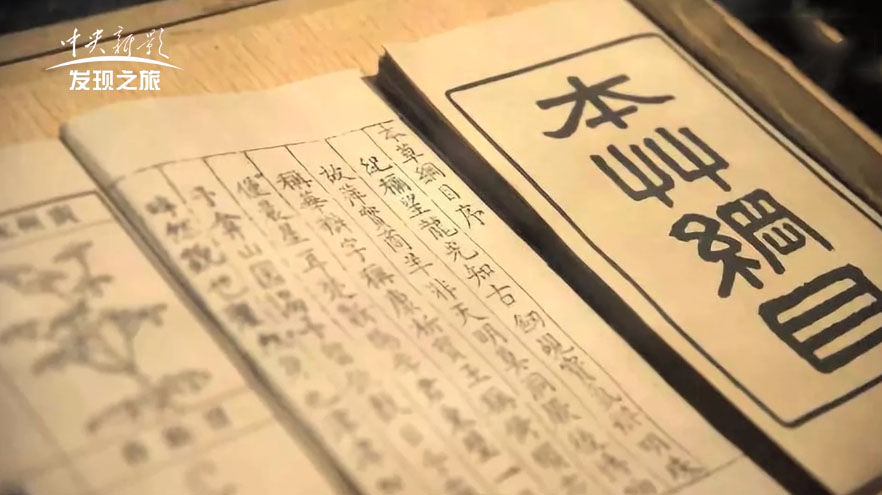 中央新影
发现之旅
本艸綱目
本草綱目序
紀稱望龍光知古劒覘寶氣辨明珠
故萍實商羊非天明莫洞厥後博物
稱華辯字稱康析寶玉稱倚
僅晨星耳楚蘄陽李君東璧一
予弇山園謁予
睟然貌也癯